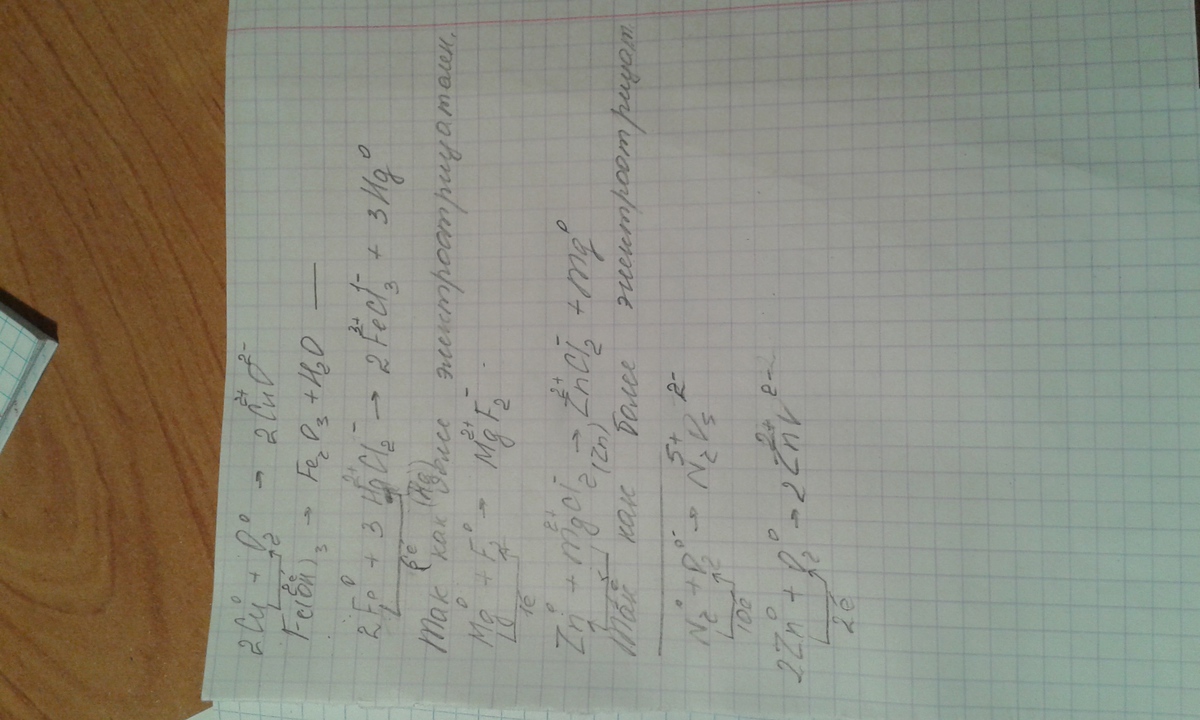 2Cu⁰ + O₂⁰ → 2Cu²⁺O²⁻
Fe(OH)₃ → Fe₂O₃ + H₂O —
2Fe⁰ + 3Hg²⁺Cl₂⁻ → 2Fe³⁺Cl₃⁻ + 3Hg⁰
6e
Так как (Hg) более электроотрицателен.
Mg⁰ + F₂⁰ → Mg²⁺F₂⁻
1e
Zn⁰ + Mg²⁺Cl₂⁻ → Zn²⁺Cl₂⁻ + Mg⁰
(Zn)
Так как более электроотрицат
N₂⁰ + O₂⁰ → N₂⁵⁺O₅²⁻
10e
2Zn⁰ + O₂⁰ → 2Zn²⁺O²⁻
2e